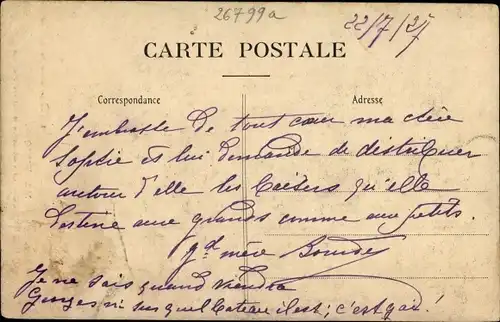 26799a
22/7/25
CARTE POSTALE
Correspondance
Adresse
J'embrasse de tout cœur ma chère
Sophie et lui demande de distribuer
autour d'elle les baisers qu'elle
destine aux grands comme aux petits.
gd mère
Je ne sais quand viendra
Georges ni sur quel bateau il est; c'est gai!